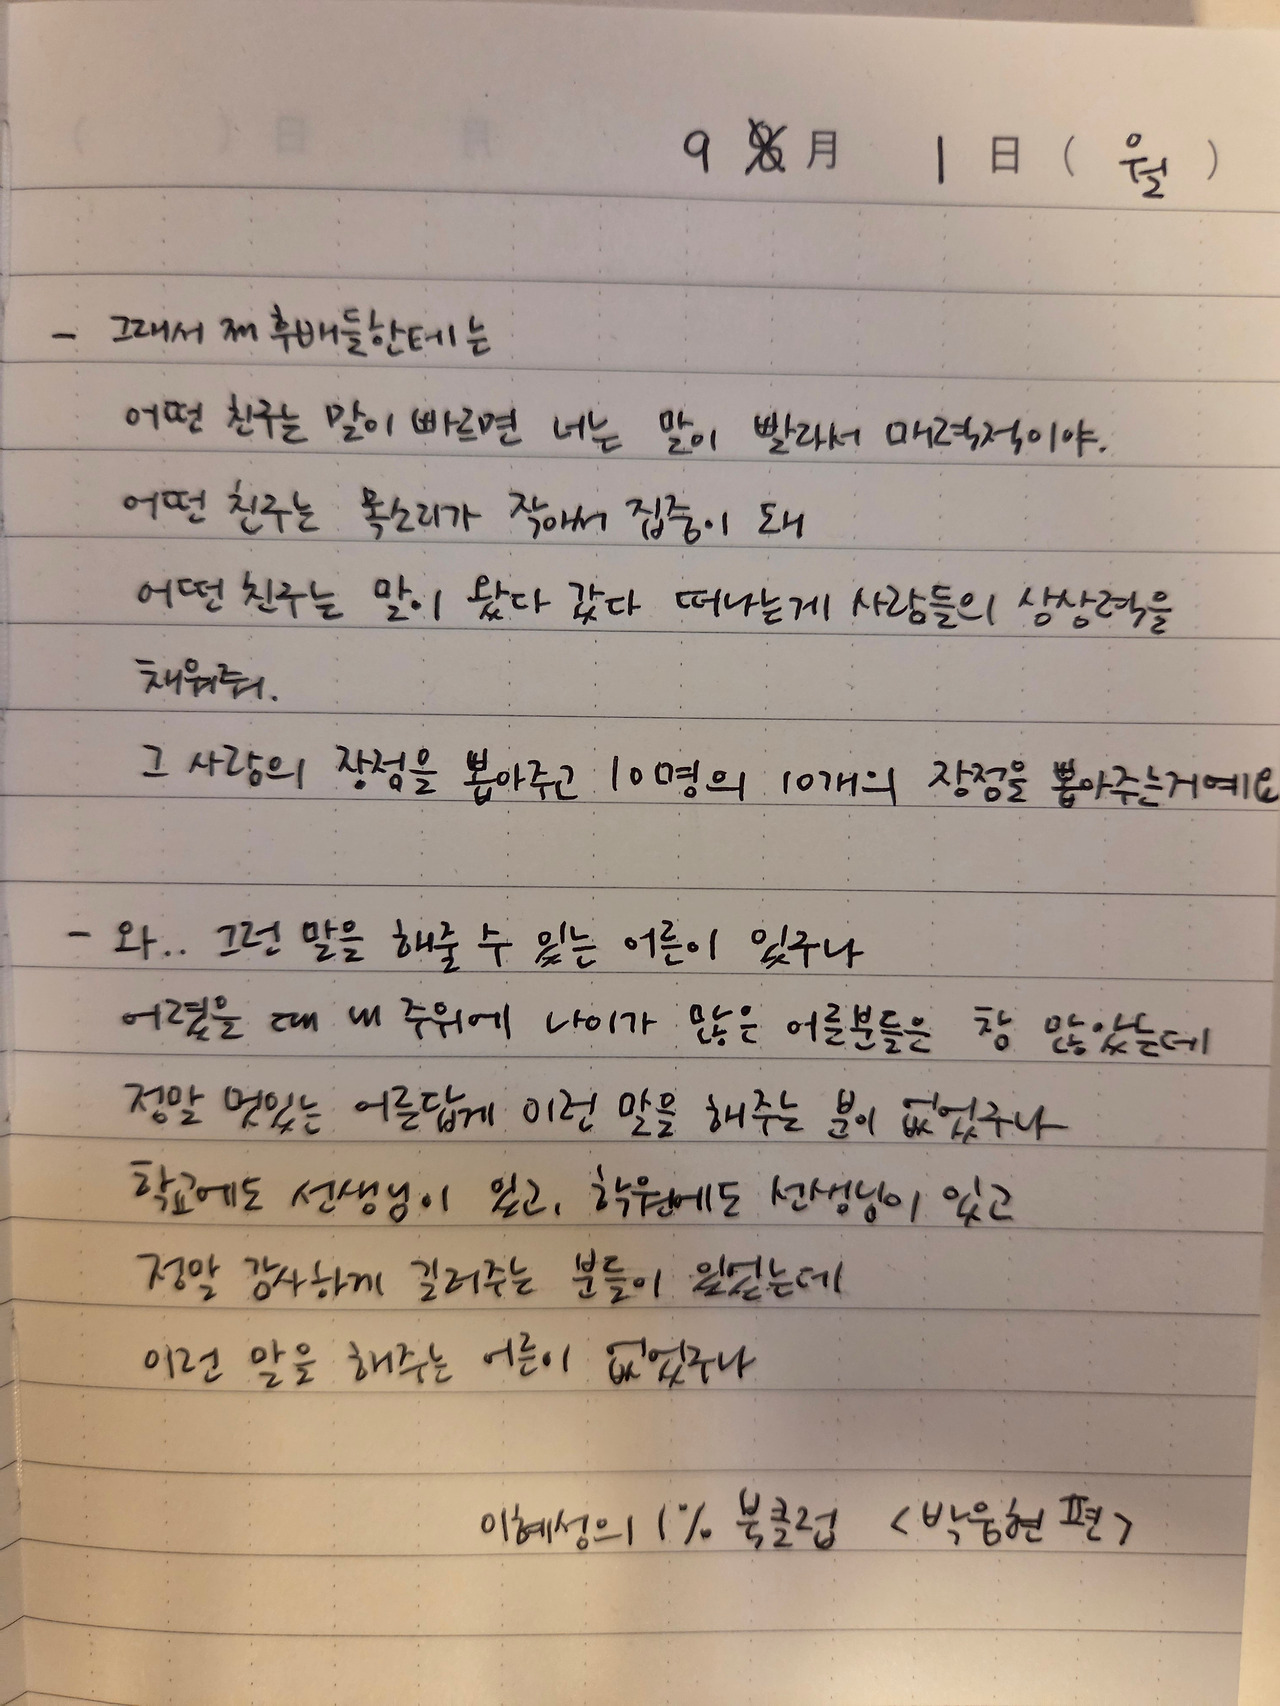 9 月 1 日 ( 월 )
- 그래서 제 후배들한테는
어떤 친구는 말이 빠르면 너는 말이 빨라서 매력적이야.
어떤 친구는 목소리가 작아서 집중이 돼
어떤 친구는 말이 왔다 갔다 떠나는게 사람들의 상상력을
채워줘.
그 사람의 장점을 뽑아주고 10명의 10개의 장점을 뽑아주는거예요
- 와.. 그런 말을 해줄 수 있는 어른이 있구나
어렸을 때 내 주위에 나이가 많은 어른분들은 참 많았는데
정말 멋있는 어른답게 이런 말을 해주는 분이 없었구나
학교에도 선생님이 있고, 학원에도 선생님이 있고
정말 감사하게 길러주는 분들이 있었는데
이런 말을 해주는 어른이 없었구나
이혜성의 1% 북클럽 <박웅현 편>